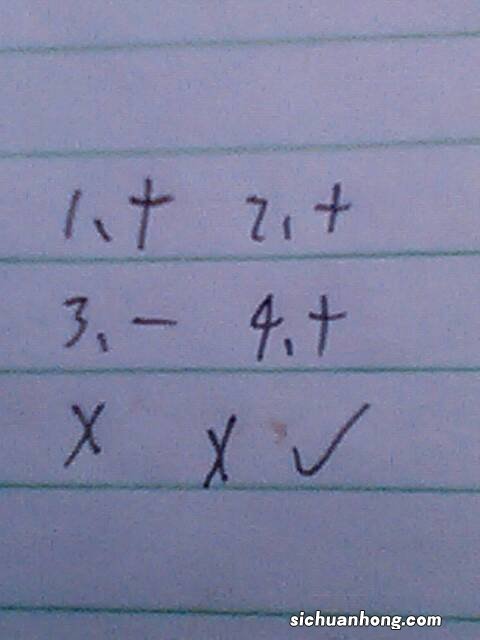 1、+ 2、+
3、- 4、+
X X ✓
sichuanhong.com